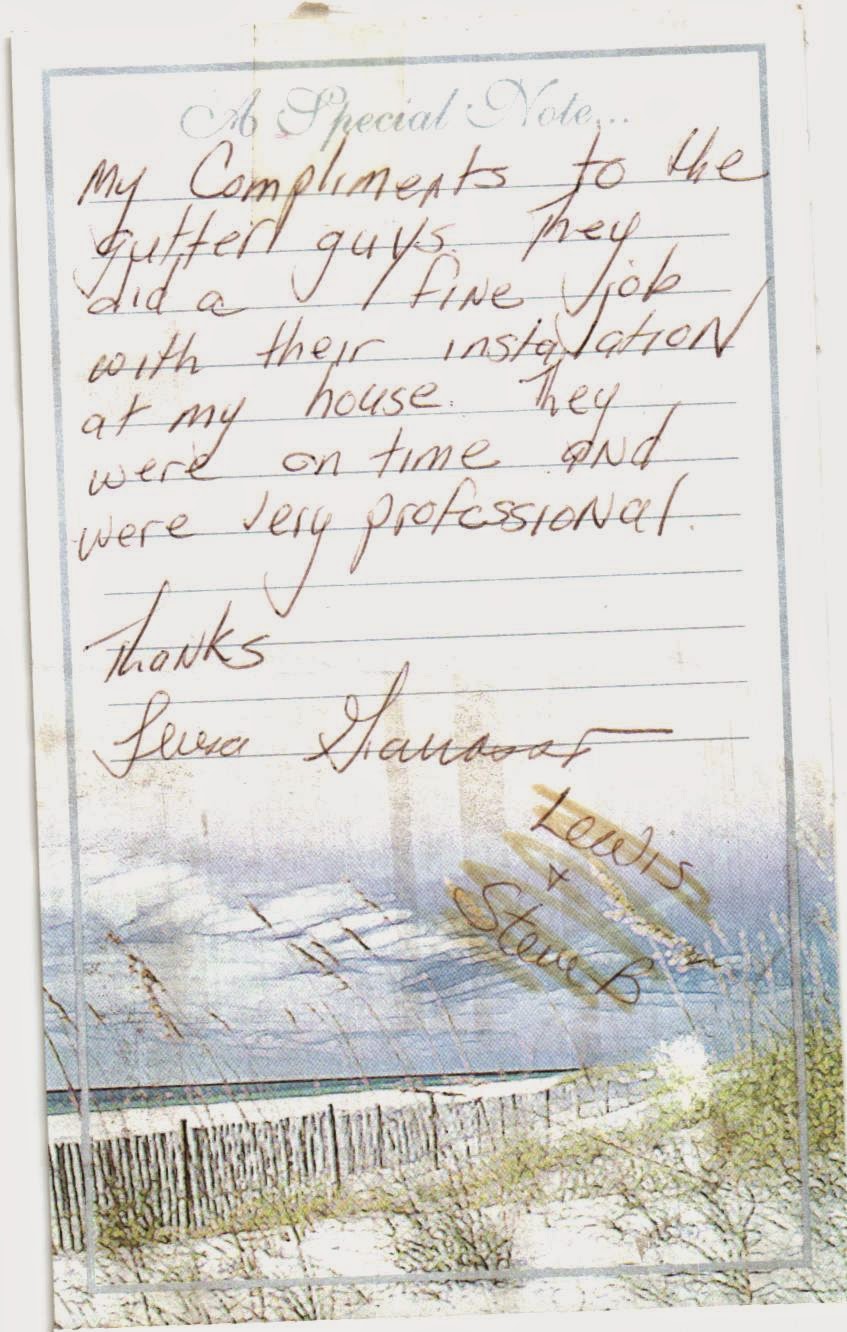 A Special Note...
My Compliments to the
gutter guys. They
did a fine job
with their instalation
at my house. They
were on time and
were very professional.
Thanks
Lewis
+
Steve B